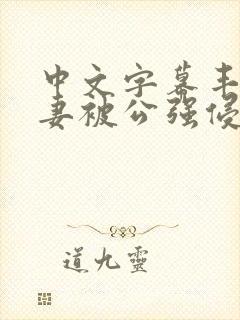 中文字幕丰
妻被公强侵
道九靈